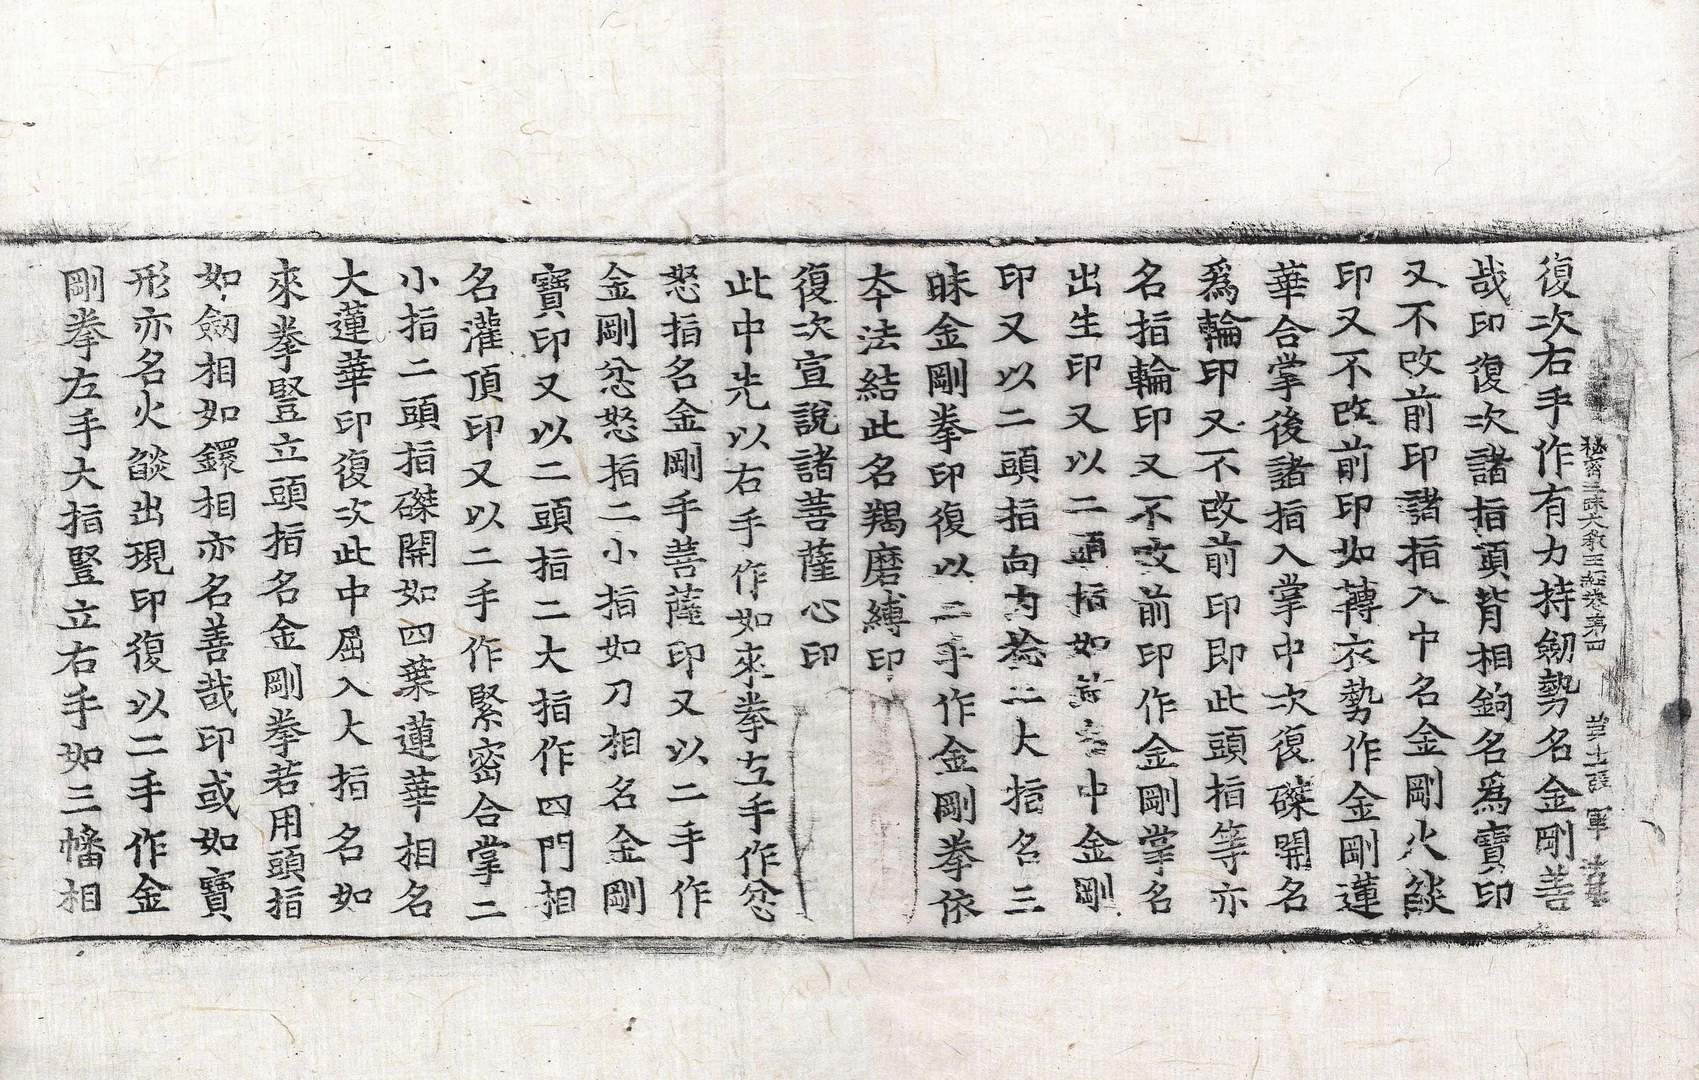 秘密三昧大教王經卷第四
復次右手作有力持劒勢名金剛善
哉印復次諸指頭背相鉤名爲寶印
又不改前印諸指入中名金剛火燄
印又不改前印如轉衣勢作金剛蓮
華合掌後諸指入掌中次復磔開名
爲輪印又不改前印即此頭指等亦
名指輪印又不改前印作金剛掌名
出生印又以二頭指如 中金剛
印又以二頭指向内捻二大指名三
昧金剛拳印復以二手作金剛拳依
本法結此名羯磨縛印
復次宣說諸菩薩心印
此中先以右手作如來拳左手作忿
怒指名金剛手菩薩印又以二手作
金剛忿怒指二小指如刀相名金剛
寶印又以二頭指二大指作四門相
名灌頂印又以二手作緊密合掌二
小指二頭指磔開如四葉蓮華相名
大蓮華印復次此中屈入大指名如
來拳豎立頭指名金剛拳若用頭指
如劒相如鐸相亦名善哉印或如寶
形亦名火燄出現印復以二手作金
剛拳左手大指豎立右手如三幡相